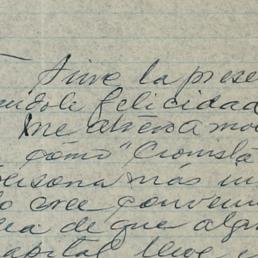 Sirva la prese
ndole felicidad
me atrevo a mo
como "Cronista
persona mas in
lo cree conveni
ea de que algu
capital lleve